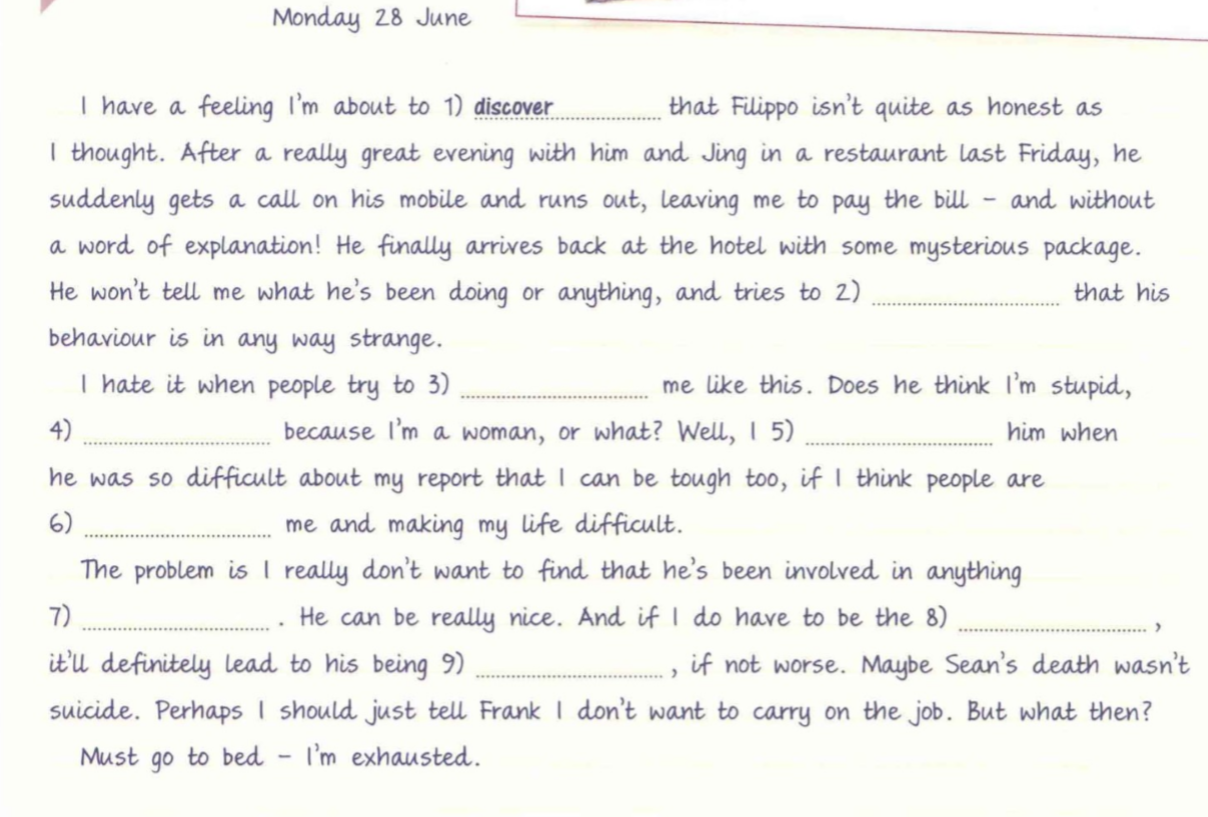 Monday 28 June
I have a feeling I'm about to 1) discover that Filippo isn't quite as honest as
I thought. After a really great evening with him and Jing in a restaurant last Friday, he
suddenly gets a call on his mobile and runs out, leaving me to pay the bill – and without
a word of explanation! He finally arrives back at the hotel with some mysterious package.
He won't tell me what he's been doing or anything, and tries to 2) .......... that his
behaviour is in any way strange.
I hate it when people try to 3) .......... me like this. Does he think I'm stupid,
4) .......... because I'm a woman, or what? Well, I 5) .......... him when
he was so difficult about my report that I can be tough too, if I think people are
6) .......... me and making my life difficult.
The problem is I really don't want to find that he's been involved in anything
7) .......... . He can be really nice. And if I do have to be the 8) .......... ,
it'll definitely lead to his being 9) .......... , if not worse. Maybe Sean's death wasn't
suicide. Perhaps I should just tell Frank I don't want to carry on the job. But what then?
Must go to bed – I'm exhausted.